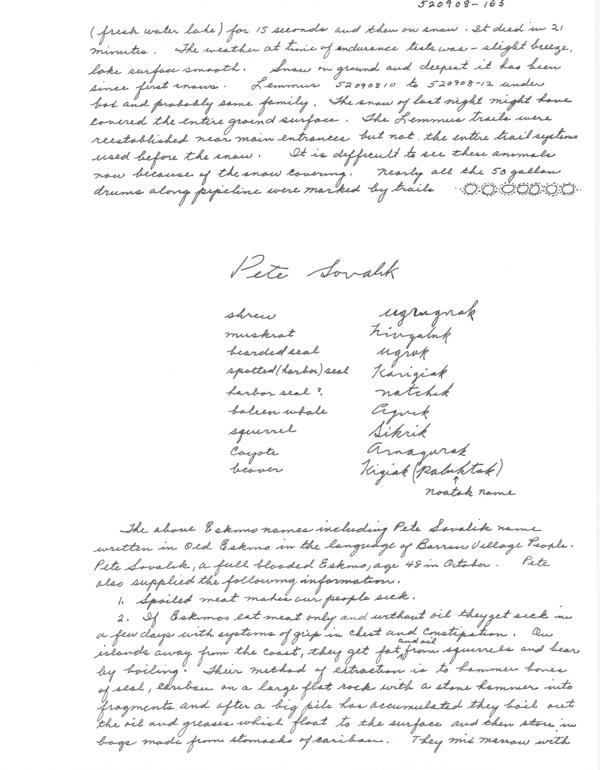 520908-165
(fresh water lake) for 15 seconds and then on snow. It died in 21
minutes. The weather at time of endurance tests was - slight breeze,
lake surface smooth. Snow on ground and deepest it has been
since first snows. Lemmus 52090810 to 520908-12 under
box and probably same family. The snow of last night might have
covered the entire ground surface. The Lemmus trails were
reestablished near main entrances but not the entire trail systems
used before the snow. It is difficult to see these animals
now because of the snow covering. Nearly all the 50 gallon
drums along pipeline were marked by trails
Pete Sovalik
shrew ugrugnak
muskrat kivgaluk
bearded seal ugruk
spotted (harbor) seal Karigiak
harbor seal ? natchik
baleen whale Agvik
squirrel Sikrik
Coyote Amagurak
beaver Kigiak (Paluktak)
noatak name
The above Eskimo names including Pete Sovalik name
written in Old Eskimo in the language of Barrow Village People.
Pete Sovalik, a full blooded Eskimo, age 48 in October. Pete
also supplied the following information.
1. Spoiled meat makes our people sick.
2. If Eskimos eat meat only and without oil they get sick in
a few days with systems of grip in chest and constipation. On
islands away from the coast, they get fat and oil from squirrels and bear
by boiling. Their method of extraction is to hammer bones
of seal, caribou on a large flat rock with a stone hammer into
fragments and after a big pile has accumulated they boil out
the oil and greases which float to the surface and then store in
bags made from stomachs of caribou. They mix marrow with